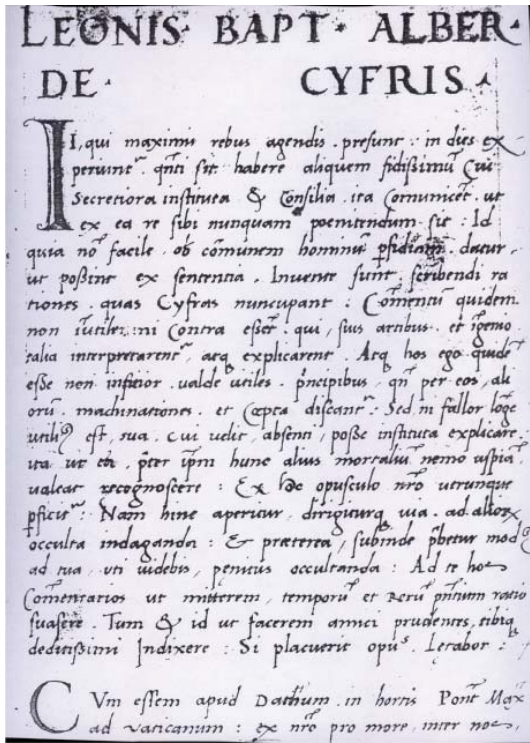 LEONIS· BAPT· ALBER·
DE· CYFRIS·
II, qui maximis rebus agendis . presunt : in dies ex
periuntᷣ . qñti sit habere aliquem fidissimũ Cui
Secretiora instituta & Consilia . ita Comunicet . ut
ex ea re sibi nunquam poenitendum sit : Id
quia nõ facile . ob cõmunem hominũ perfidiam datur,
ut possint ex sententia . Inuente sunt . scribendi ra
tiones . quas Cyfras nuncupant : Cõmentũ quidem
non iutile: ni Contra essẽt . qui , suis artibus . et igenio
talia interpretarentᷣ , atq explicarent . Atq hos ego quidẽ
esse non inficior . ualde utiles . pñcipibus , qñ per eos , ali
orũ . machinationes . et Cœpta discantᷣ : Sed ni fallor lõge
utiliꝰ est , sua . cui uelit , absenti , posse instituta explicare .
ita ut , pter ipm hunc alius mortaliũ nemo uspiã .
ualeat recognoscere : Ex hoc opusculo nrõ utrunque
pficitᷣ : Nam hinc aperitur , dirigiturq uia . ad
occulta indaganda : & præterea , subinde pbetur mod
ad tua , uti uidebis , penitus occultanda : Ad te hos
Comentarios ut mitterem , temporũ et Rerũ pñtium ratio
suasere . Tum & id ut facerem amici prudentes , tibiq
deditissimi Indixere : Si placuerit opuˢ . Letabor :
CVm essem apud Dathium . in hortis Pont Max
ad Vaticanum : ex nrõ pro more , inter nos ,